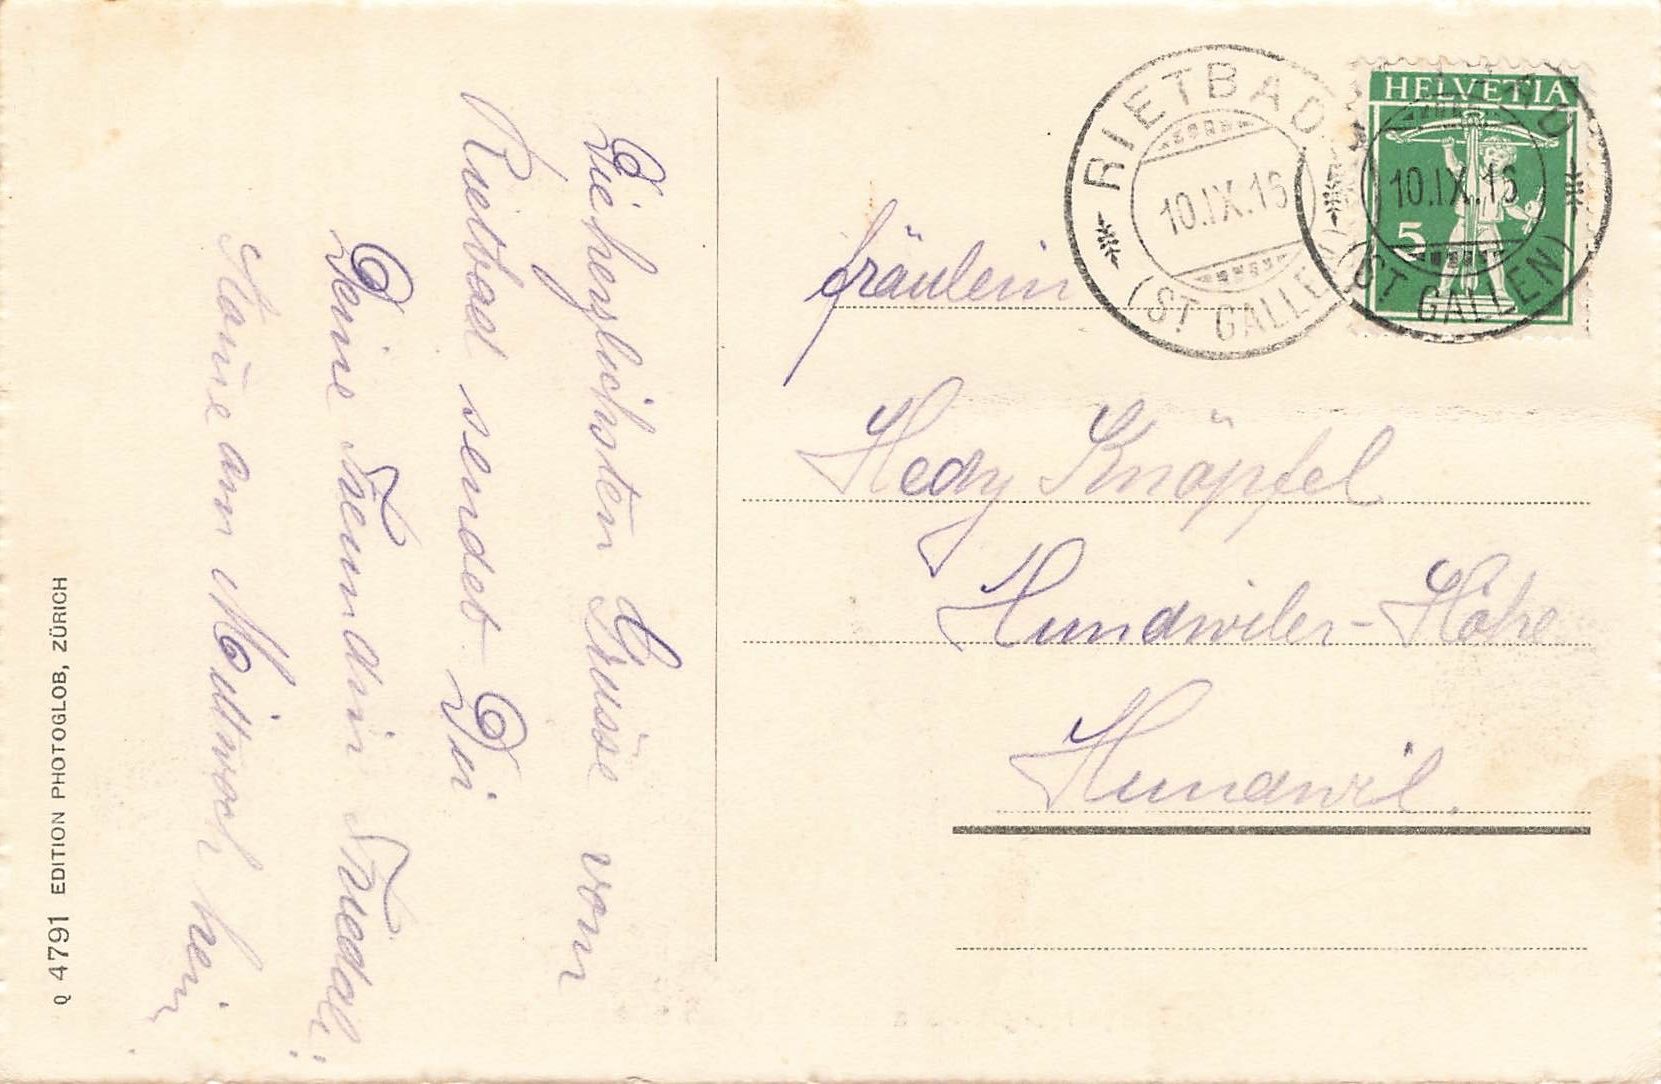 Die herzlichsten Grüsse vom
Rietbad sendet Dir
Deine Freundin Friedali
Komme am Mittwoch heim
Fräulein
Hedy Knöpfel
Hundwiler-Höhe
Hundwil.
RIETBAD
10.IX.16
(ST. GALLEN)
HELVETIA
5
10.IX.16
(ST. GALLEN)
Q 4791 EDITION PHOTOGLOB, ZÜRICH